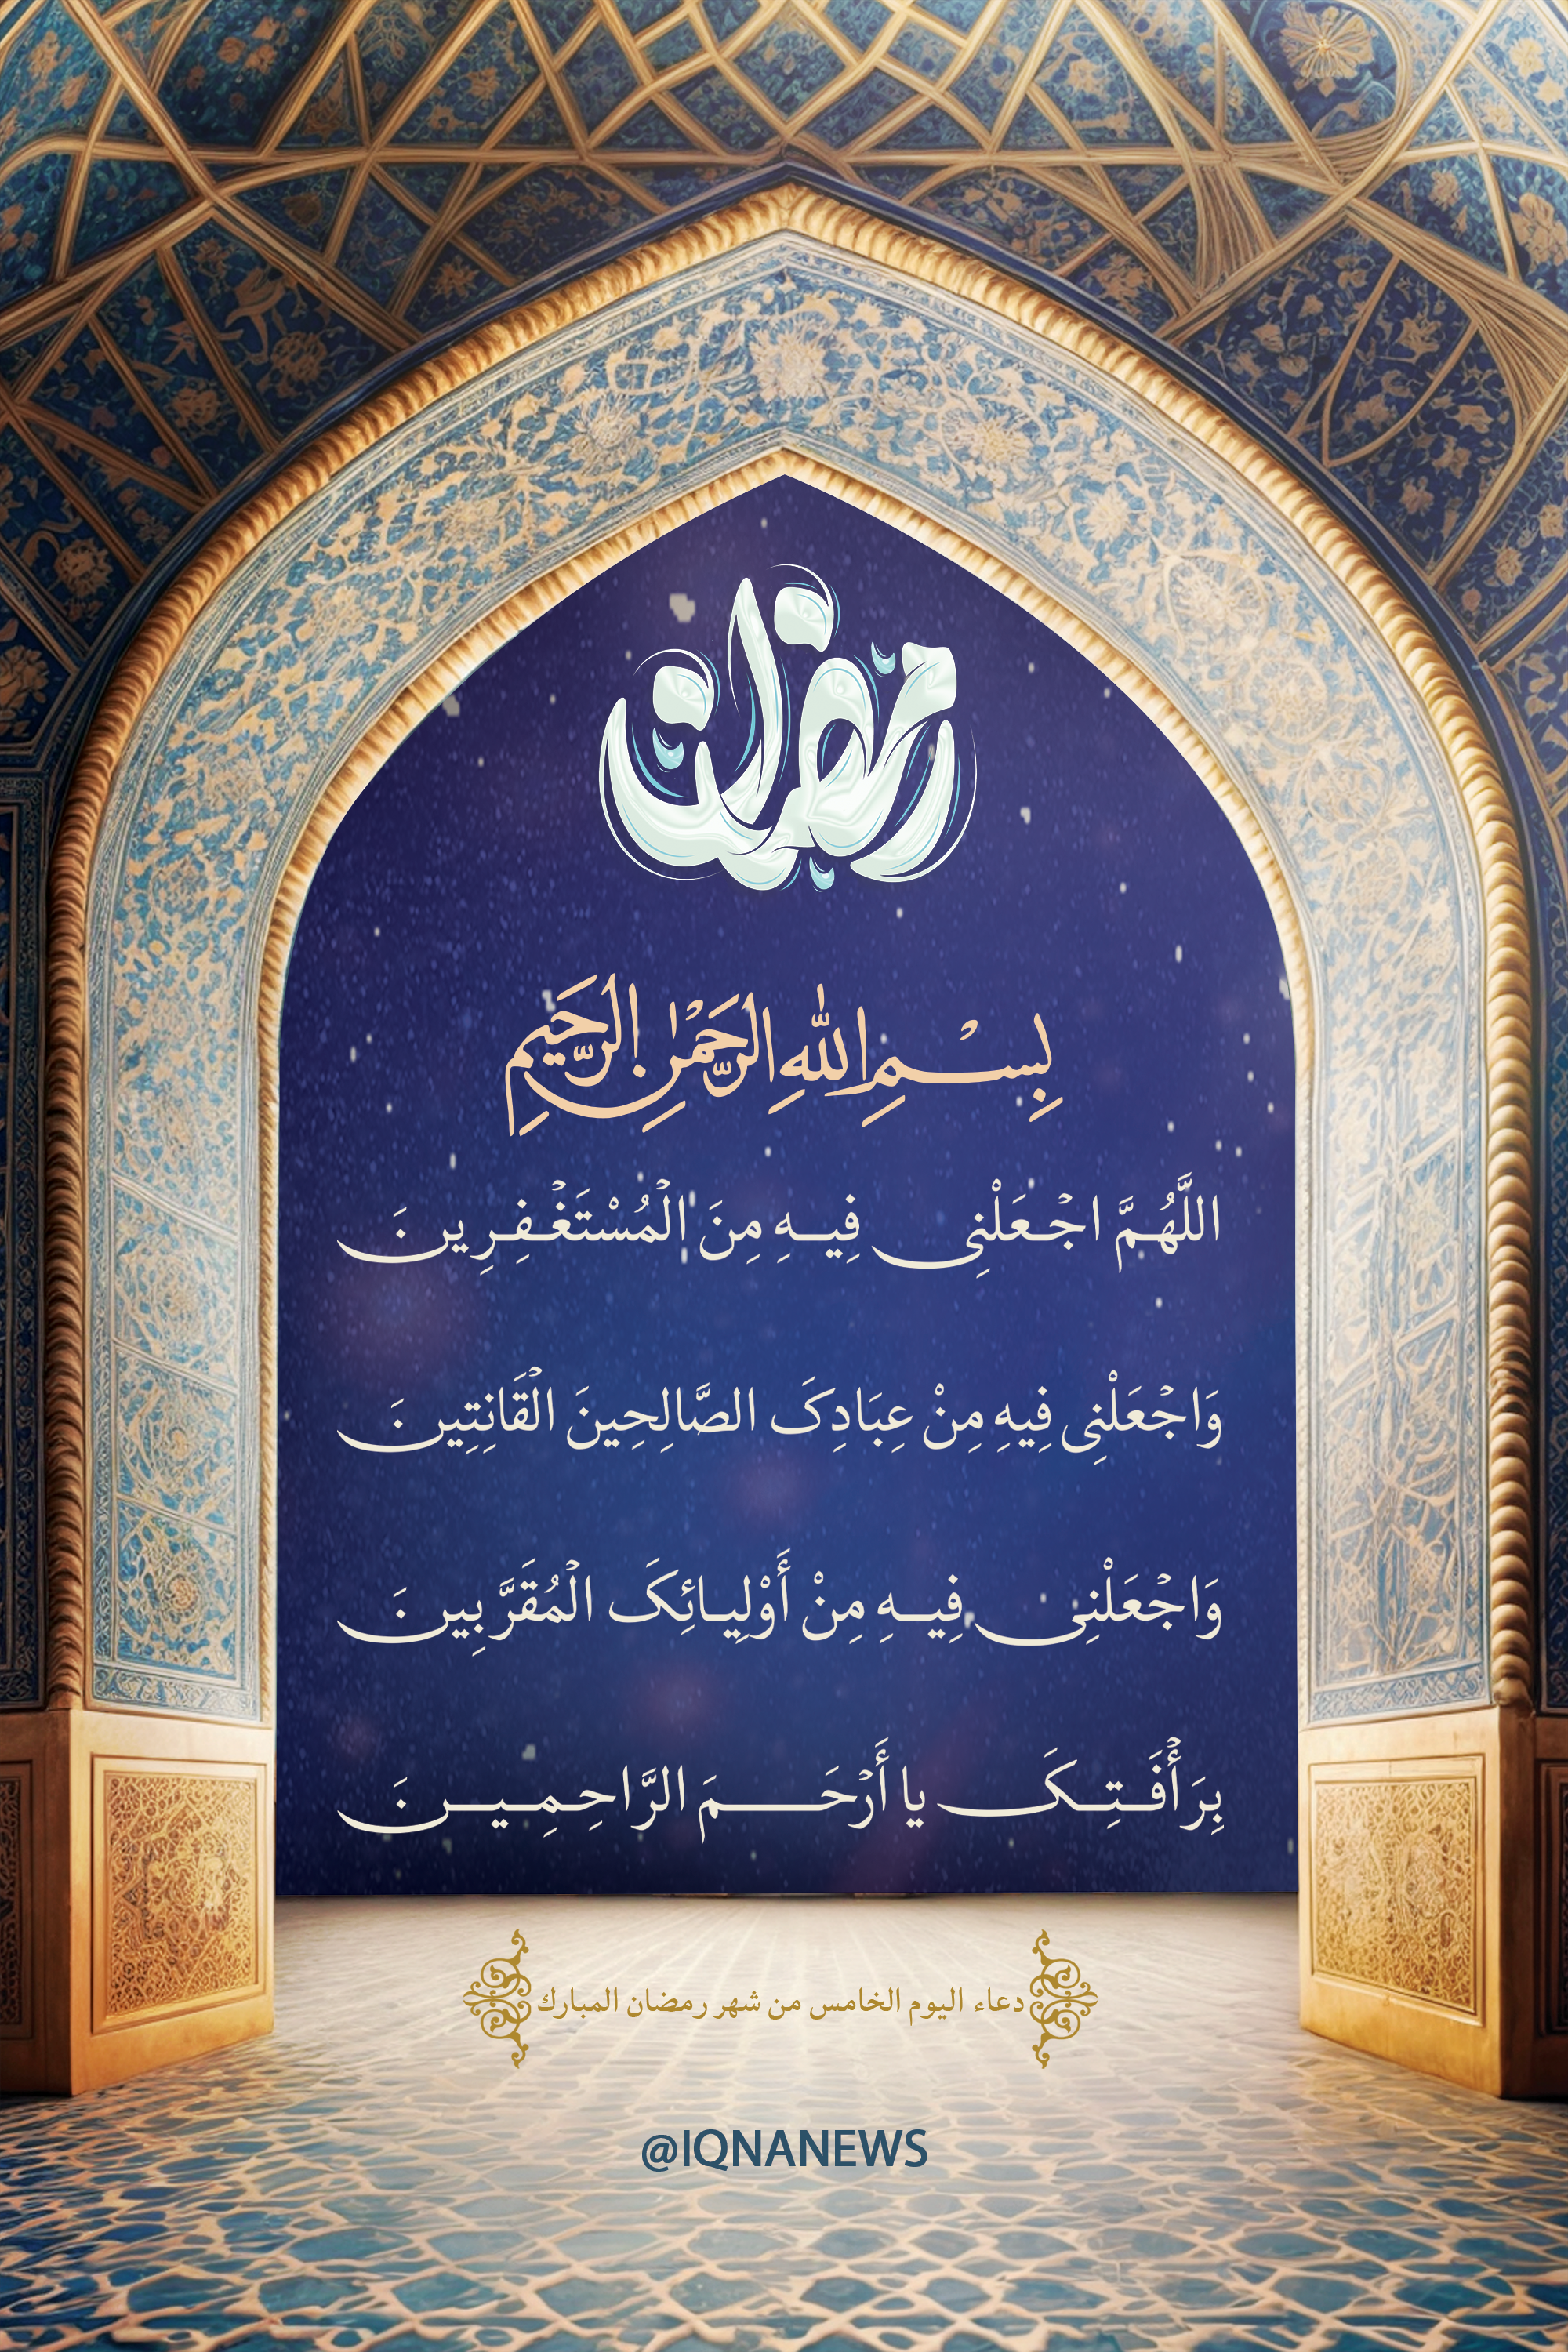 رمضان
بِسْمِ اللهِ الرَّحْمٰنِ الرَّحِيمِ
اللَّهُمَّ اجْعَلْنِی فِیهِ مِنَ الْمُسْتَغْفِرِینَ
وَاجْعَلْنِی فِیهِ مِنْ عِبَادِکَ الصَّالِحِینَ الْقَانِتِینَ
وَاجْعَلْنِی فِیهِ مِنْ أَوْلِیائِکَ الْمُقَرَّبِینَ
بِرَأْفَتِکَ یا أَرْحَمَ الرَّاحِمِینَ
دعاء اليوم الخامس من شهر رمضان المبارك
@IQNANEWS